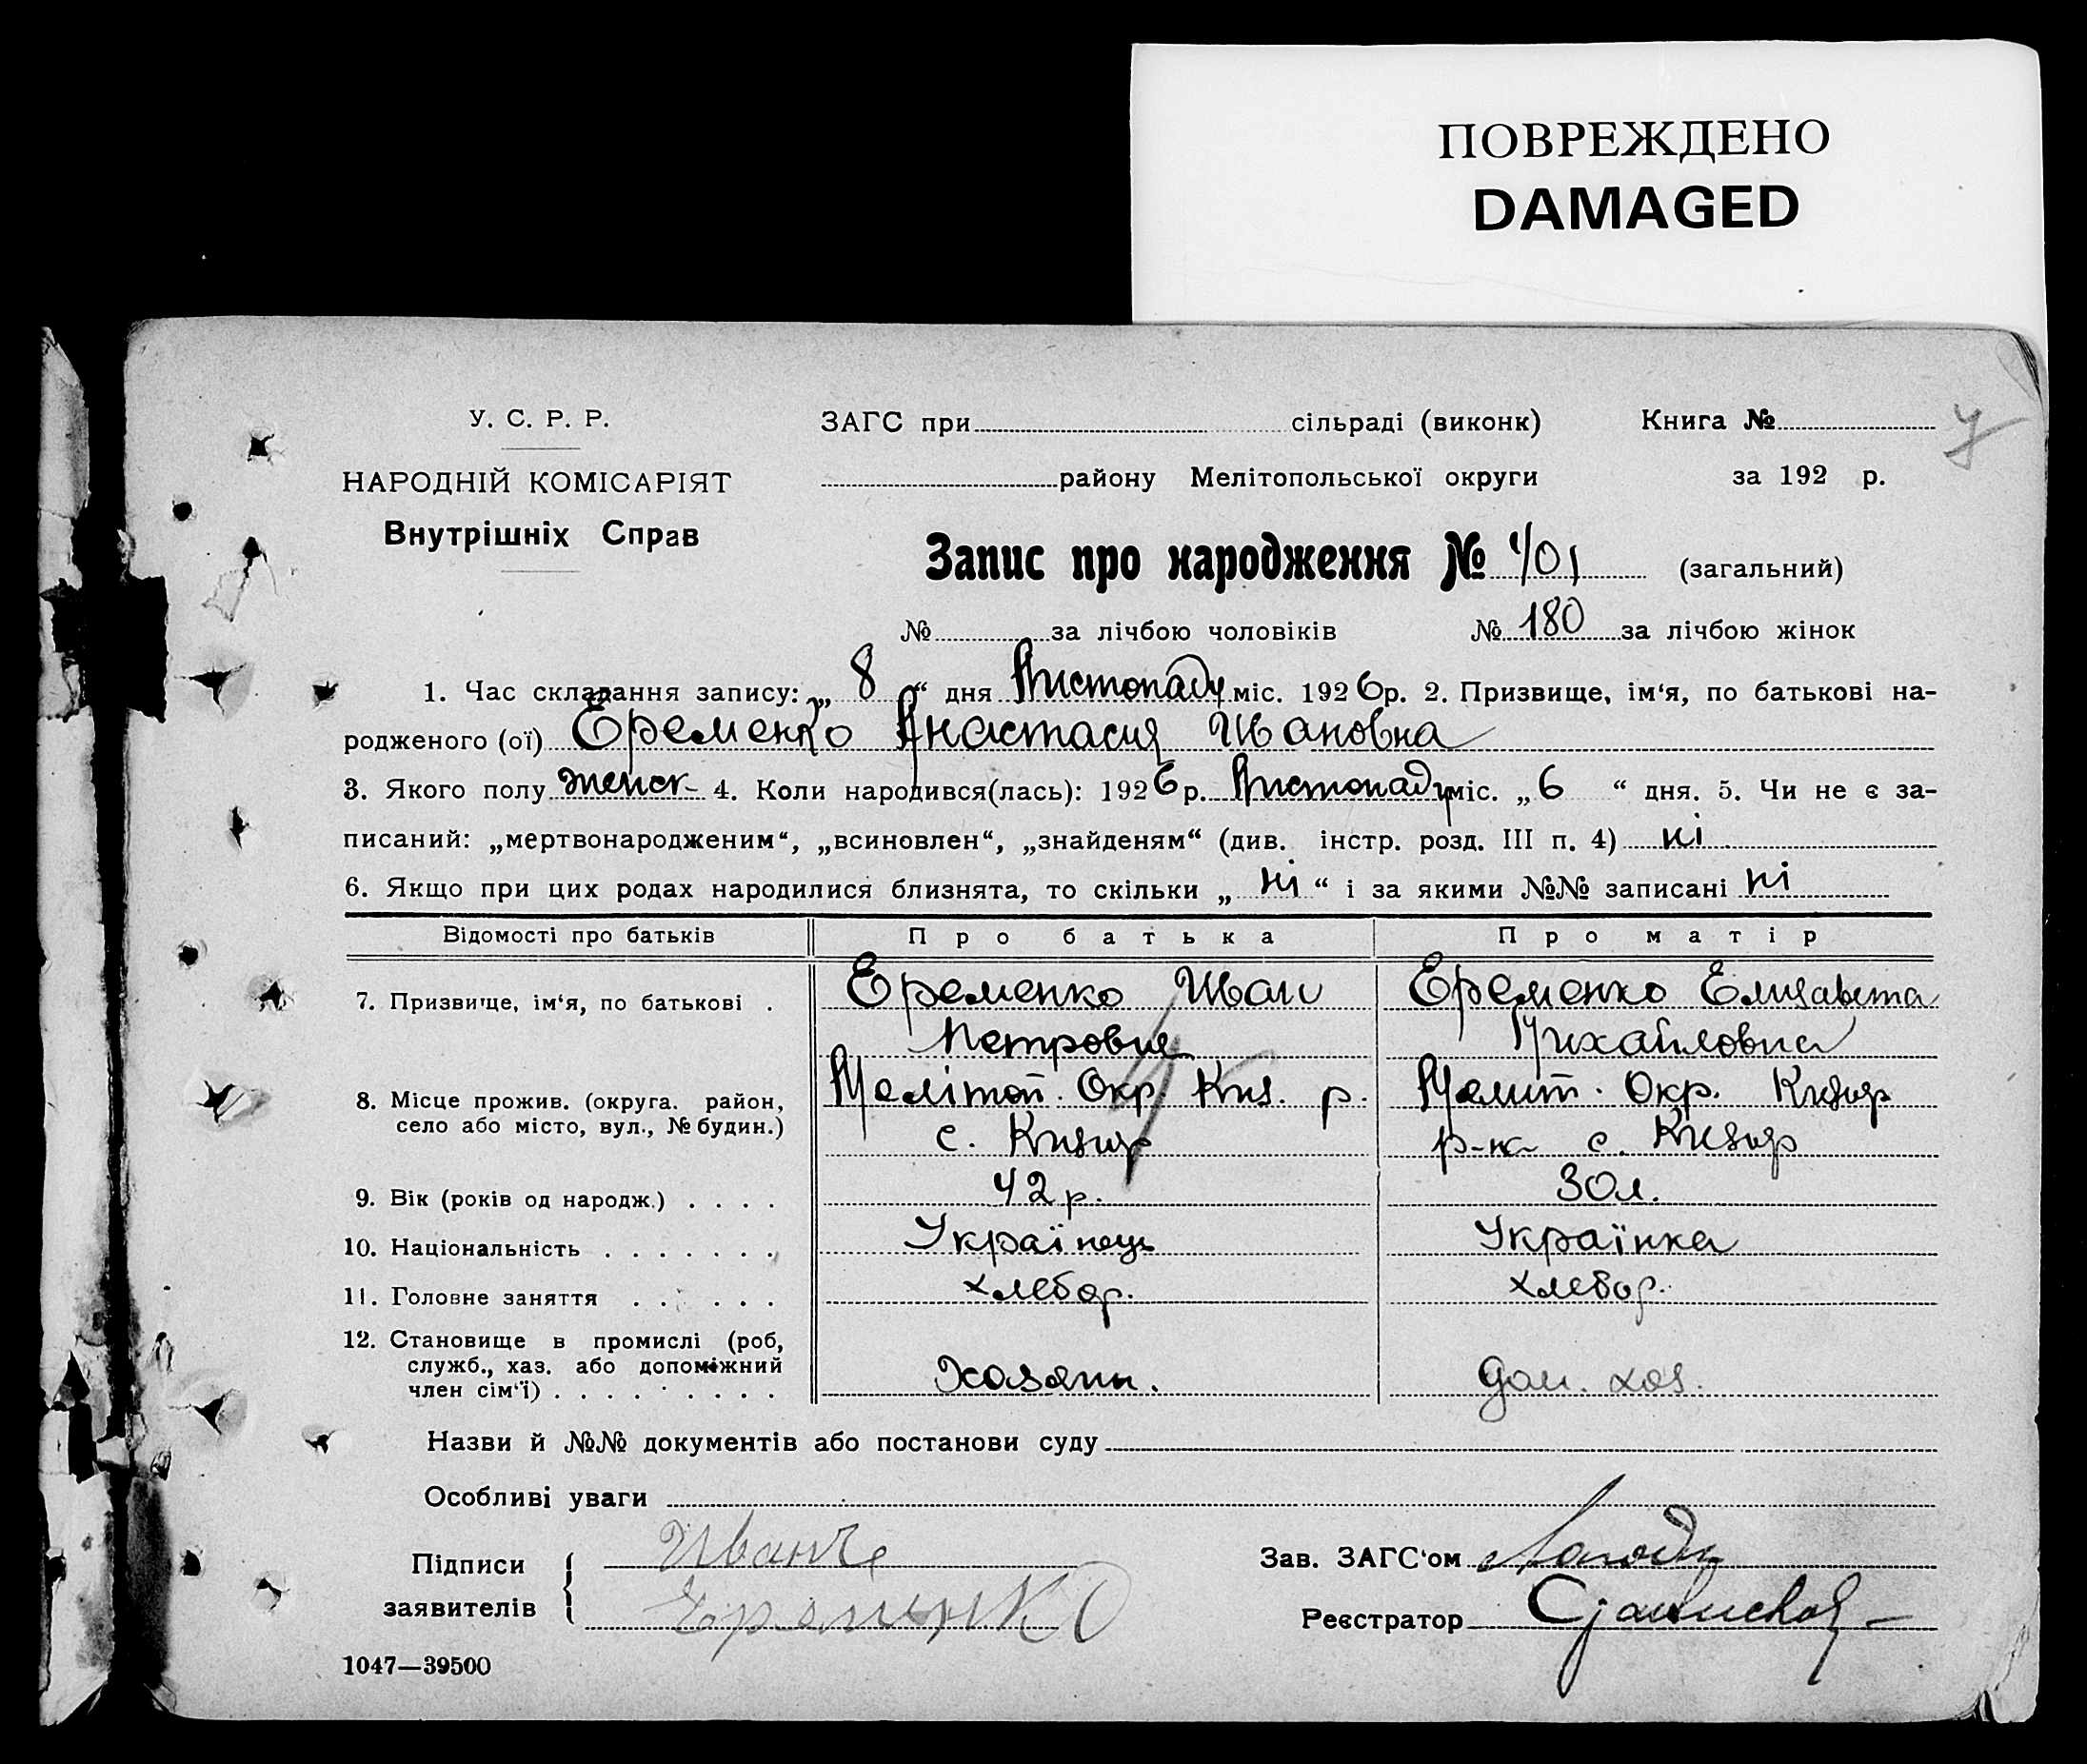 ПОВРЕЖДЕНО
DAMAGED
У. С. Р. Р.
НАРОДНІЙ КОМІСАРІЯТ
Внутрішніх Справ
ЗАГС при сільраді (виконк) Книга №
району Мелітопольської округи за 192 р.
Запис про народження № 401 (загальний)
№ за лічбою чоловіків № 180 за лічбою жінок
1. Час складання запису: „ 8 “ дня Листопаду міс. 1926 р. 2. Призвище, ім‘я, по батькові на-
родженого (ої) Еременко Анастасия Ивановна
3. Якого полу женск- 4. Коли народився(лась): 1926 р. Листопаду міс. „ 6 “ дня. 5. Чи не є за-
писаний: „мертвонародженим“, „всиновлен“, „знайденям“ (див. інстр. розд. III п. 4) ні
6. Якщо при цих родах народилися близнята, то скільки „ ні “ і за якими №№ записані ні
Відомості про батьків Про батька Про матір
7. Призвище, ім‘я, по батькові . Еременко Иван Еременко Елизавета
Петрович Михайловна
8. Місце прожив. (округа. район, Меліноп. Окр. Киз. р. Мелит. Окр. Кизир
село або місто, вул., № будин.) с. Кизир р-на с. Кизир
9. Вік (років од народж.) . . . . 42 р. 30 л.
10. Національність . . . . . . . Українець Українка
11. Головне заняття . . . . . . хлебор. хлебор.
12. Становище в промислі (роб,
служб., хаз. або допоміжний
член сім‘ї) . . . . . . . . . Хозяин. дом. хоз.
Назви й №№ документів або постанови суду
Особливі уваги
Підписи
заявителів
Еременко
Зав. ЗАГС‘ом
Реєстратор
1047—39500